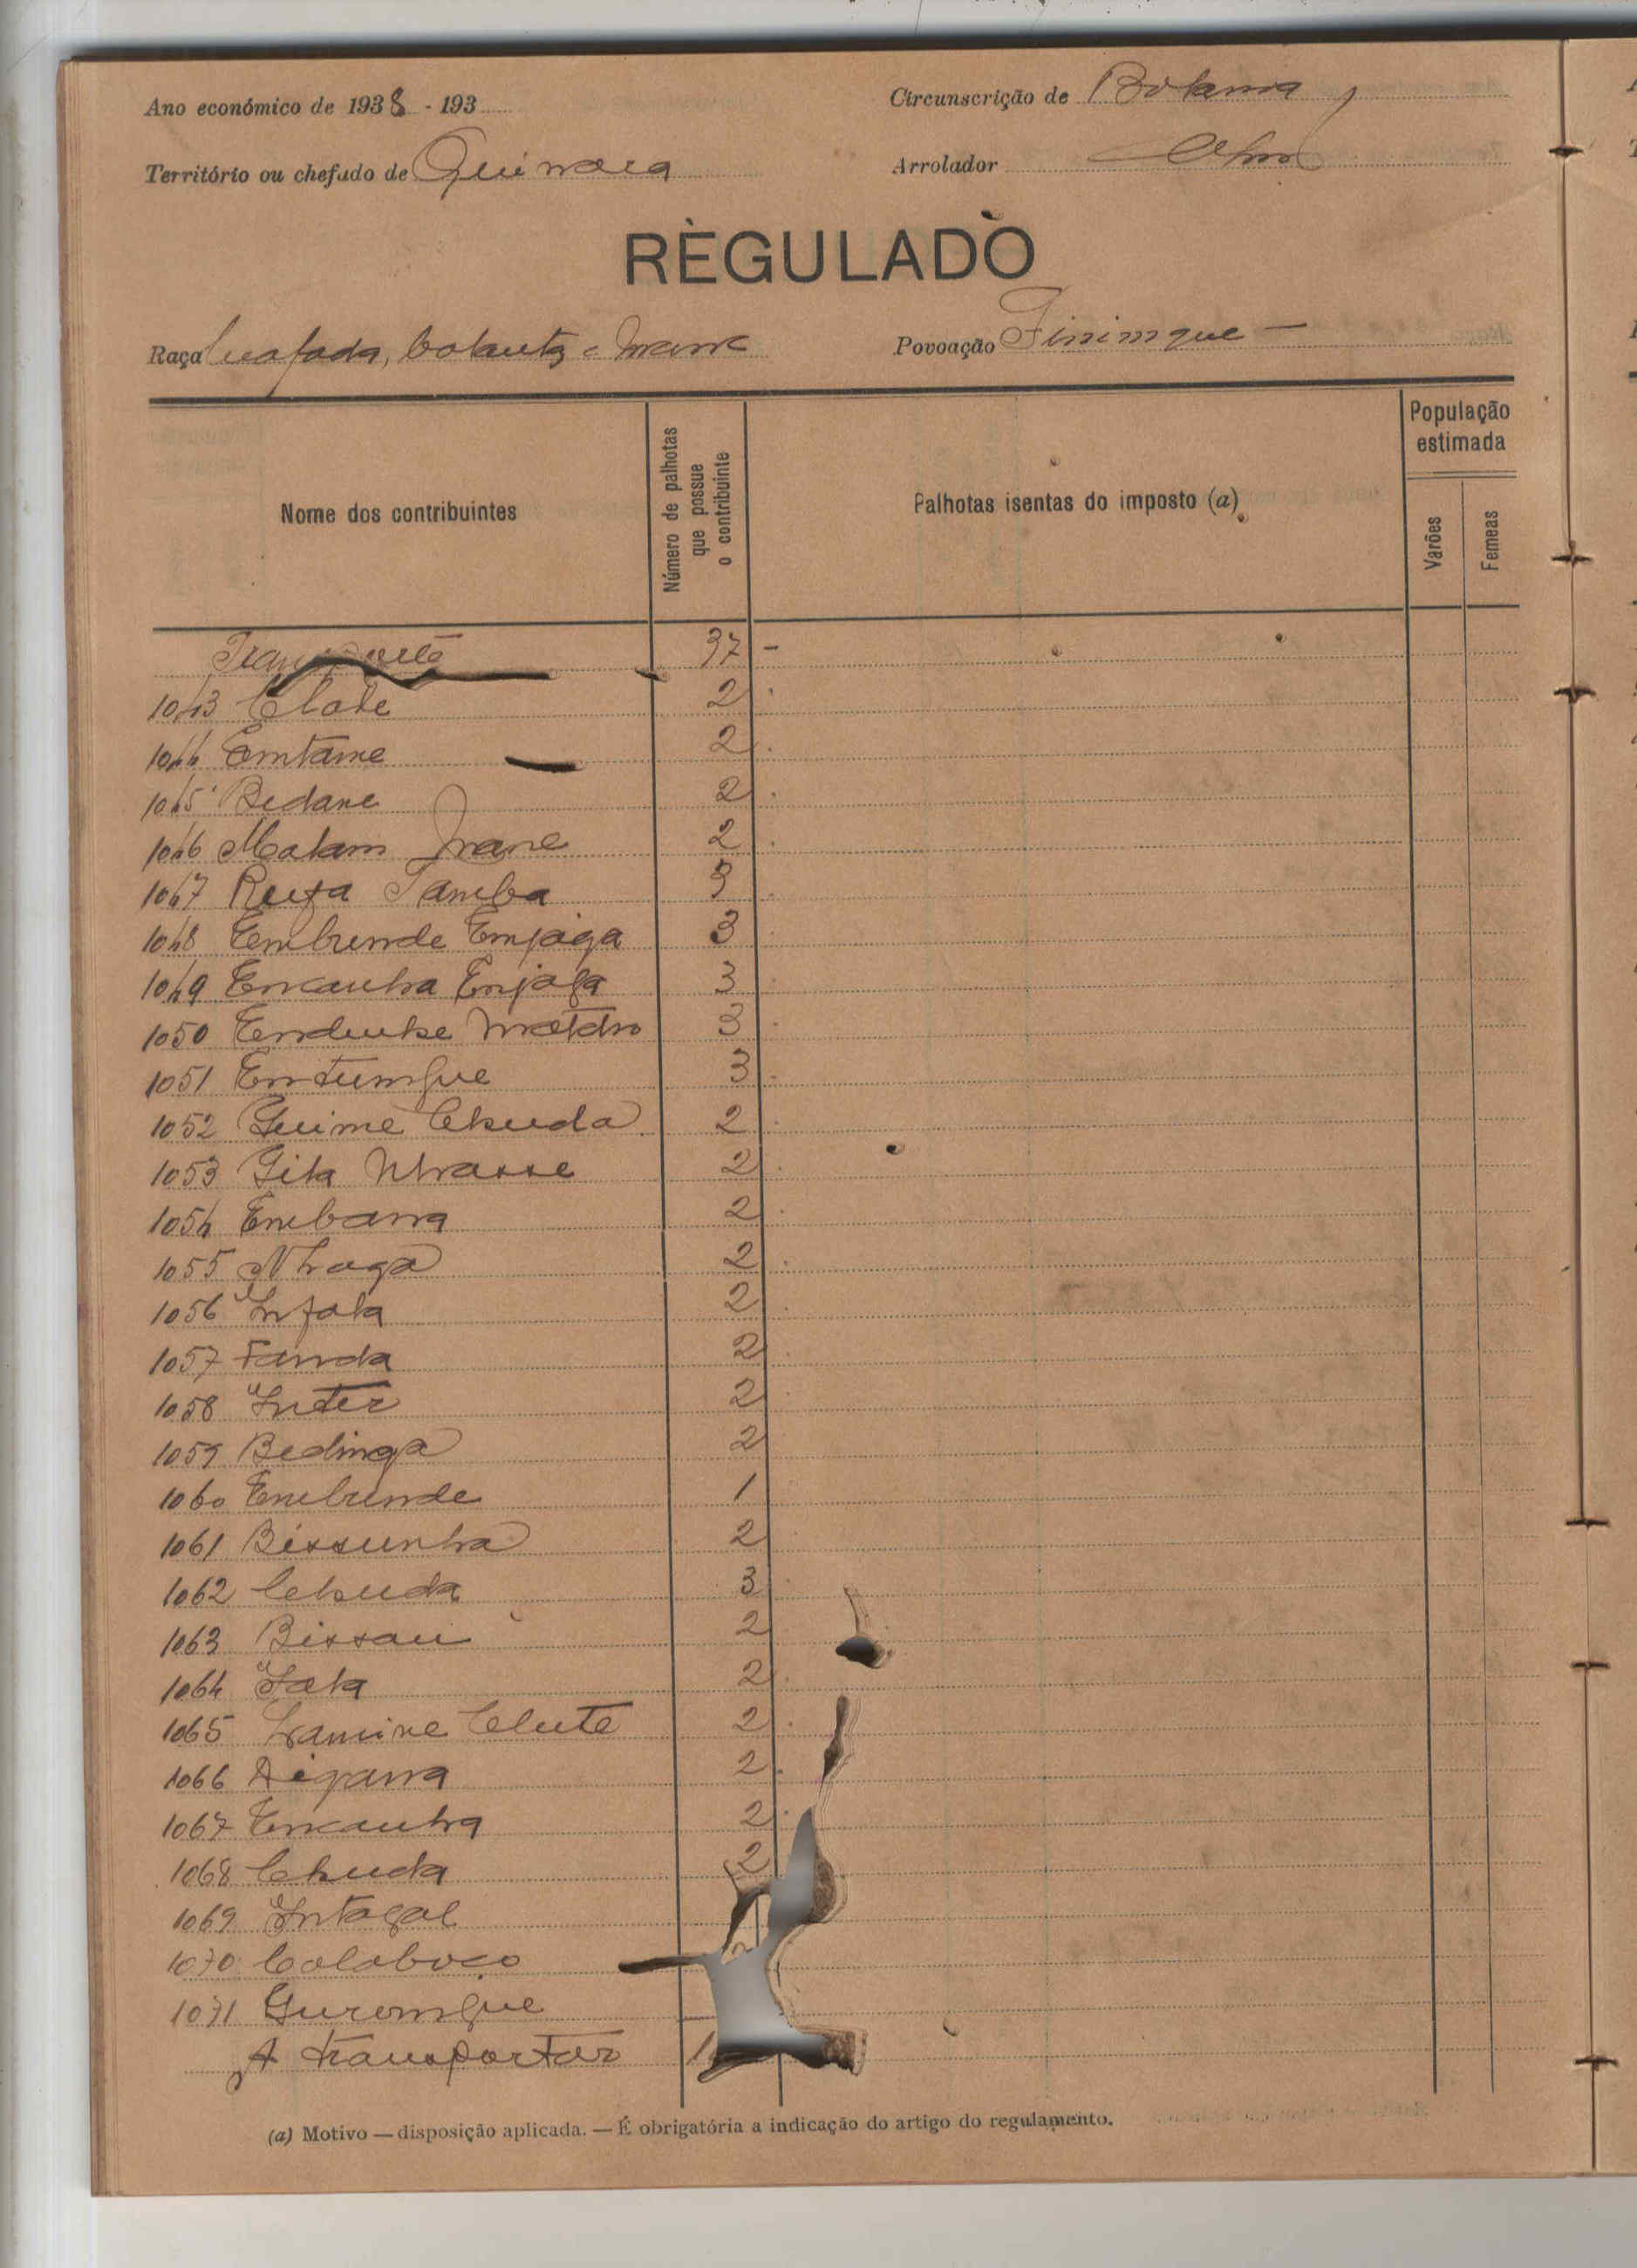 Ano económico de 1938 - 193
Circunscrição de Bolama
Território ou chefado de Quinara
Arrolador
REGULADO
Raça Beafada, Balanta e Mane
Povoação
Nome dos contribuintes
Número de palhotas que possue o contribuinte
Palhotas isentas do imposto (a)
População estimada
Varões
Femeas
Transporte 97 -
1043 Clode 2
1044 Emtame 2
1045 Bedane 2
1046 Malam Mane 2
1047 Tamba 3
1048 Embunde Emjaga 3
1049 Encanha Enjaga 3
1050 3
1051 Entungue 3
1052 Guime Chuda 2
1053 2
1054 Embana 2
1055 Nhaga 2
1056 Infala 2
1057 Fanda 2
1058 Inter 2
1059 Bedinga 2
1060 Embunde 1
1061 Bissunha 2
1062 Chuda 3
1063 Bissau 2
1064 2
1065 Lamine Clute 2
1066 2
1067 Encanha 2
1068 Chuda 2
1069 Intagal
1070 Calaboço
1071 Gurongue
A transportar 1
(a) Motivo — disposição aplicada. — É obrigatória a indicação do artigo do regulamento.